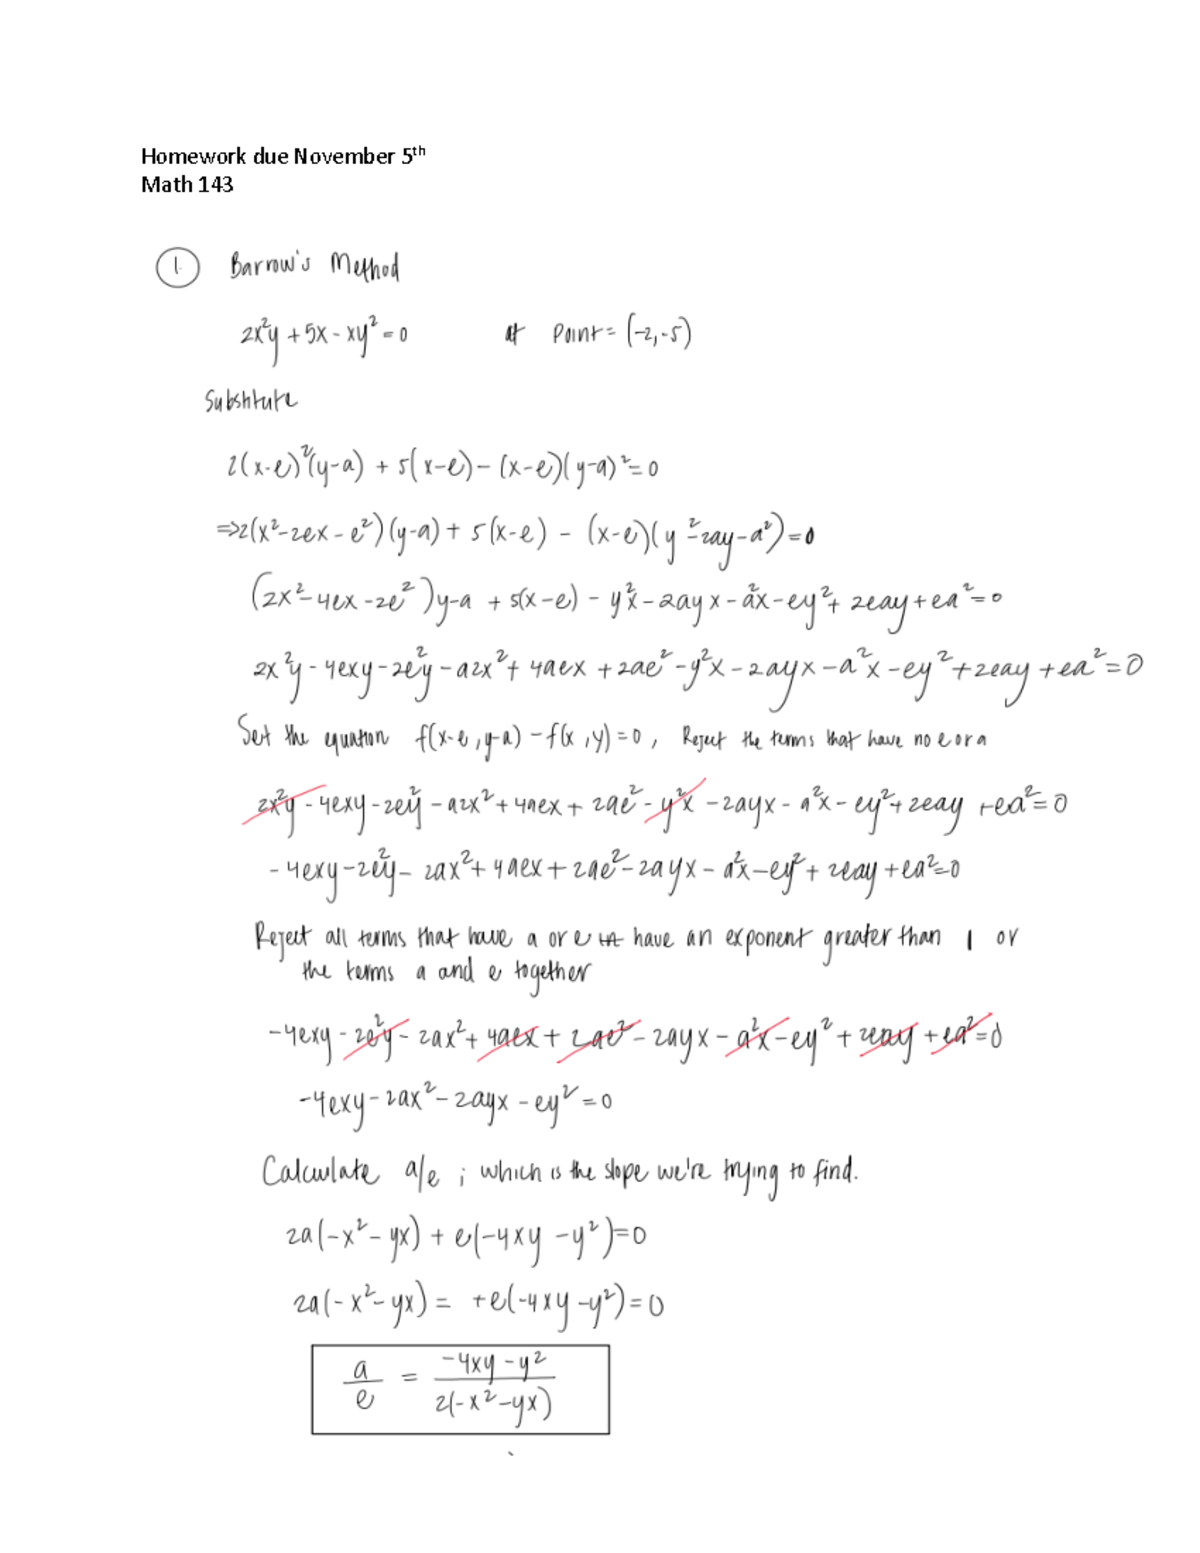 Homework due November 5th
Math 143
1. Barrow's Method
2x²y + 5x - xy² = 0 at Point = (-2,-5)
Substitute
2(x-e)²(y-a) + 5(x-e) - (x-e)(y-a)² = 0
⇒ 2(x²-2ex-e²)(y-a) + 5(x-e) - (x-e)(y²-2ay-a²) = 0
(2x²-4ex-2e²)y-a + 5(x-e) - y²x - 2ayx - a²x - ey² + 2eay + ea² = 0
2x²y - 4exy - 2e²y - a2x² + 4aex + 2ae² - y²x - 2ayx - a²x - ey² + 2eay + ea² = 0
Set the equation f(x-e, y-a) - f(x,y) = 0, Reject the terms that have no e or a
2x²y - 4exy - 2e²y - a2x² + 4aex + 2ae² - y²x - 2ayx - a²x - ey² + 2eay + ea² = 0
-4exy - 2e²y - 2ax² + 4aex + 2ae² - 2ayx - a²x - ey² + 2eay + ea² = 0
Reject all terms that have a or e have an exponent greater than 1 or
the terms a and e together
-4exy - 2e²y - 2ax² + 4aex + 2ae² - 2ayx - a²x - ey² + 2eay + ea² = 0
-4exy - 2ax² - 2ayx - ey² = 0
Calculate a/e ; which is the slope we're trying to find.
2a(-x² - yx) + e(-4xy - y²) = 0
2a(-x² - yx) = +e(-4xy - y²) = 0
a/e = (-4xy - y²)/(2(-x² - yx))